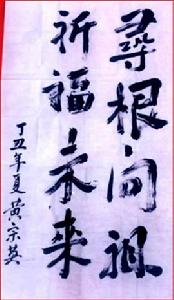 尋根问祖
祈福未来
丁丑年夏黄宗英